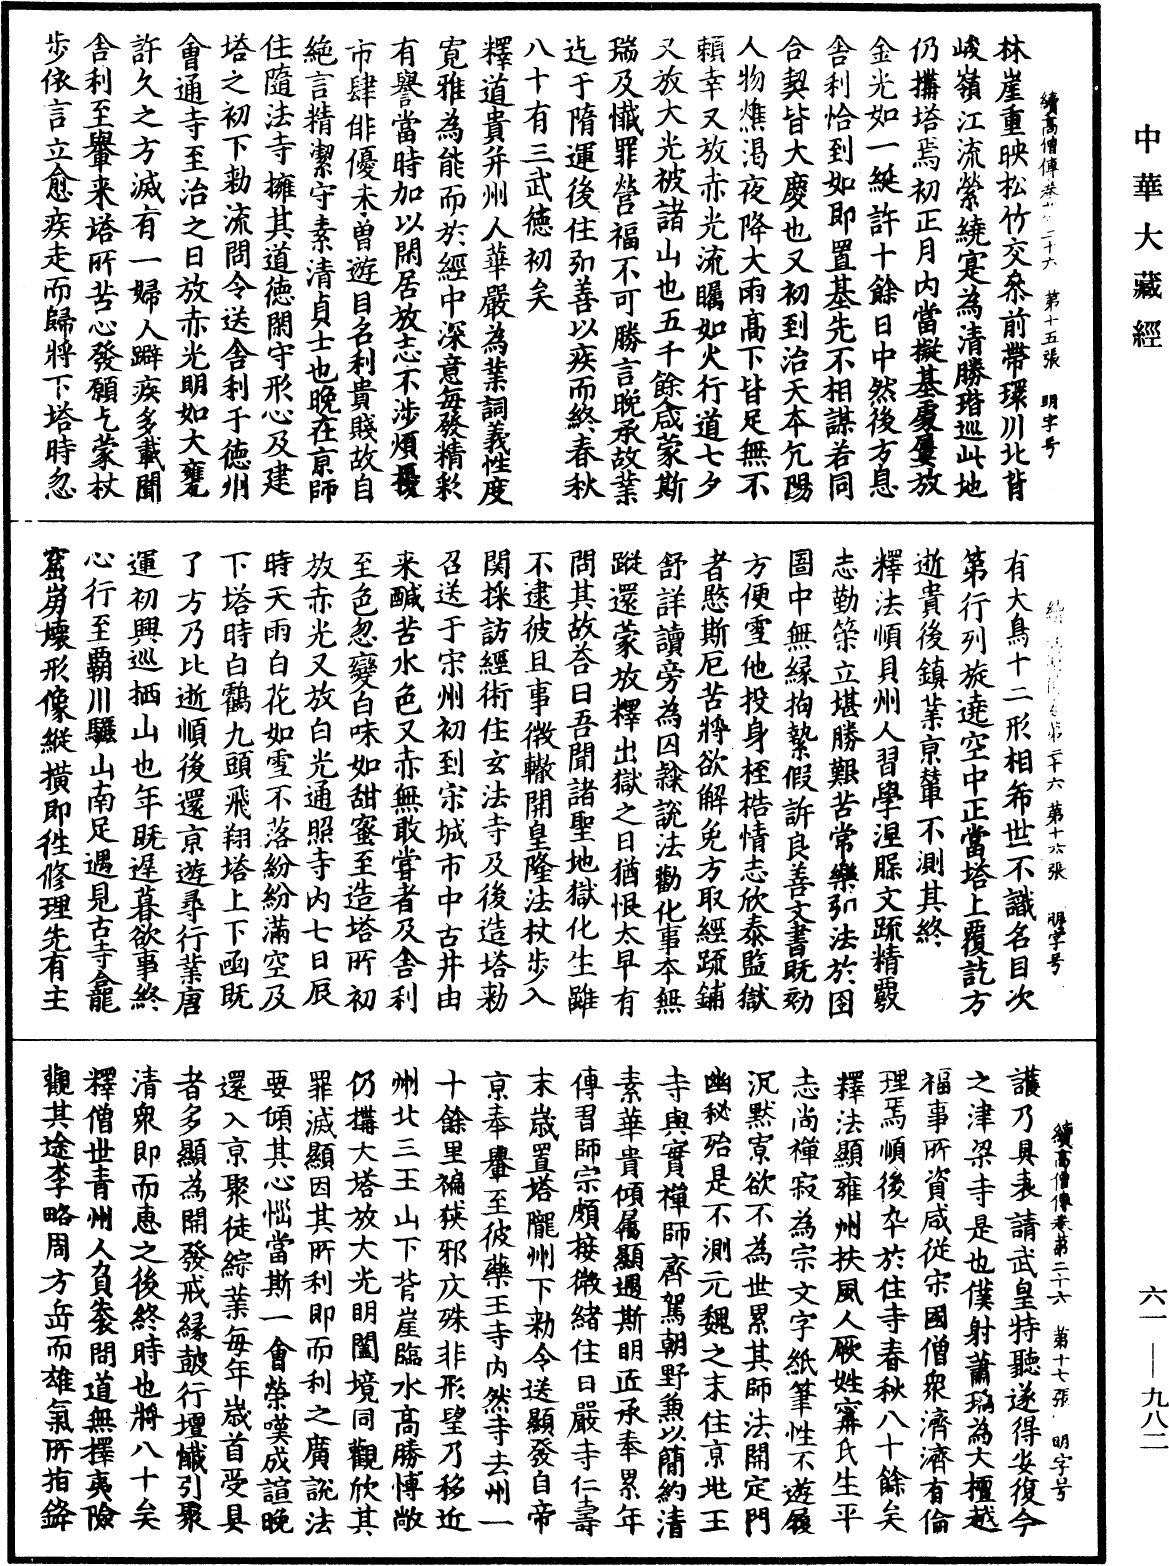 中華大藏經
六一—九八二
續高僧傳卷第二十六　第十五張　明字号
林崖重映松竹交叅前帶環川北背
峻嶺江流縈繞寔為清勝瑎巡此地
仍搆塔焉初正月内當擬基處屢放
金光如一綖許十餘日中然後方息
舍利恰到如即置基先不相謀若同
合契皆大慶也又初到治天本亢陽
人物燋渴夜降大雨高下皆足無不
賴幸又放赤光流矚如火行道七夕
又放大光被諸山也五千餘人咸蒙斯
瑞及懺罪營福不可勝言晚承故業
迄于隋運後住弘善以疾而終春秋
八十有三武德初矣
釋道貴并州人華嚴為業詞義性度
寬雅為能而於經中深意每發精彩
有譽當時加以閑居放志不涉煩擾
市肆俳優未曾遊目名利貴賤故自
絶言精潔守素清貞士也晚在京師
住隨法寺擁其道德閑守形心及建
塔之初下勅流問令送舍利于德州
會通寺至治之日放赤光明如大甕
許久之方滅有一婦人躃疾多載聞
舍利至轝来塔所苦心發願乞蒙杖
步依言立愈疾走而歸將下塔時忽
第二十六　第十六張　明字号
有大鳥十二形相希世不識名目次
第行列旋遶空中正當塔上覆訖方
逝貴後鎮業京輦不測其終
釋法順貝州人習學涅槃文疏精覈
志勤策立堪勝艱苦常樂弘法於囹
圄中無縁拘縶假訴良善文書既効
方便雪他投身桎梏情志欣泰監獄
者愍斯厄苦將欲解免方取經疏鋪
舒詳讀旁為囚隸説法勸化事本無
蹤還蒙放釋出獄之日猶恨太早有
問其故荅曰吾聞諸聖地獄化生雖
不逮彼且事微轍開皇隆法杖步入
関採訪經術住玄法寺及後造塔勅
召送于宋州初到宋城市中古井由
来醎苦水色又赤無敢甞者及舍利
至色忽變白味如甜蜜至造塔所初
放赤光又放白光通照寺内七日辰
時天雨白花如雪不落紛紛滿空及
下塔時白鶴九頭飛翔塔上下函既
了方乃比逝順後還京遊尋行業唐
運初興巡栖山也年既遅暮欲事終
心行至覇川驪山南足遇見古寺龕
窟崩壞形像縱橫即往修理先有主
續高僧傳卷第二十六　第十七張　明字号
護乃具表請武皇特聽遂得安復今
之津梁寺是也僕射蕭瑀為大檀越
福事所資咸従宋國僧衆濟濟有倫
理焉順後卒於住寺春秋八十餘矣
釋法顯雍州扶風人厥姓寗氏生平
志尚禪寂為宗文字紙筆性不遊履
沉默寡欲不為世累其師法開定門
幽秘殆是不測元魏之末住京地王
寺與實禪師齊駕朝野兼以簡約清
素華貴傾屬顯遇斯明匠承奉累年
傳習師宗頗接微緒住日嚴寺仁壽
末歲置塔隴州下勅令送顯發自帝
京奉轝至彼藥王寺内然寺去州一
十餘里褊狹邪仄殊非形望乃移近
州北三王山下背崖臨水高勝博敞
仍搆大塔放大光明闔境同觀欣其
罪滅顯因其所利即而利之廣説法
要傾其心惱當斯一會榮嘆成諠晚
還入京聚徒綜業每年歲首受具
者多顯為開發戒縁鼓行壇懺引聚
清衆即而惠之後終時也將八十矣
釋僧世青州人負袠問道無擇夷險
觀其途李略周方岳而雄氣所指鋒